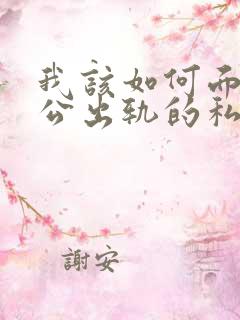 我該如何而
公出轨的私
謝安